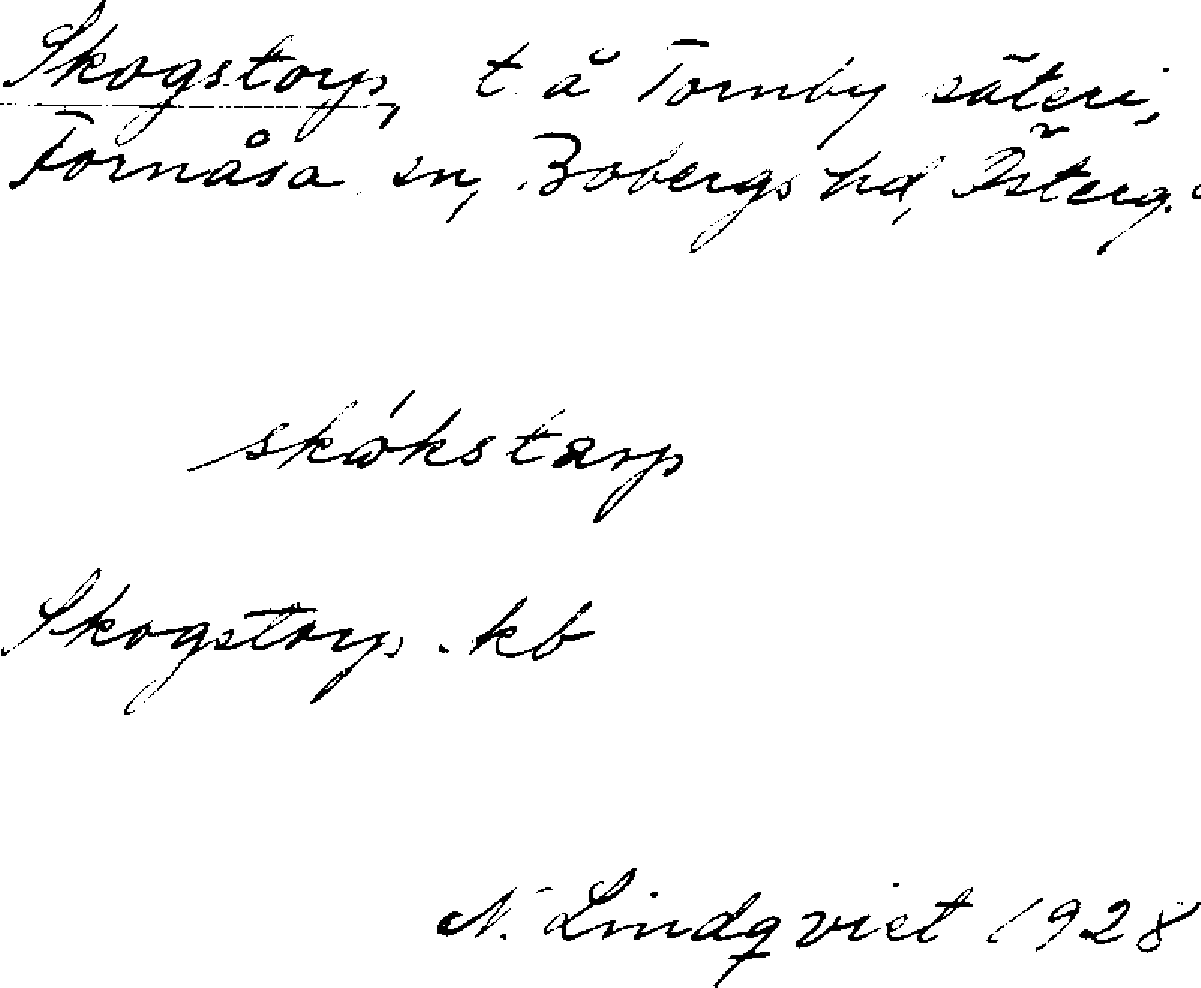 Skogstorp, t å Tornby säteri,
Fornåsa sn, Bobergs hd, Österg.
skókstarp
Skogstorp kb
N. Lindqvist 1928